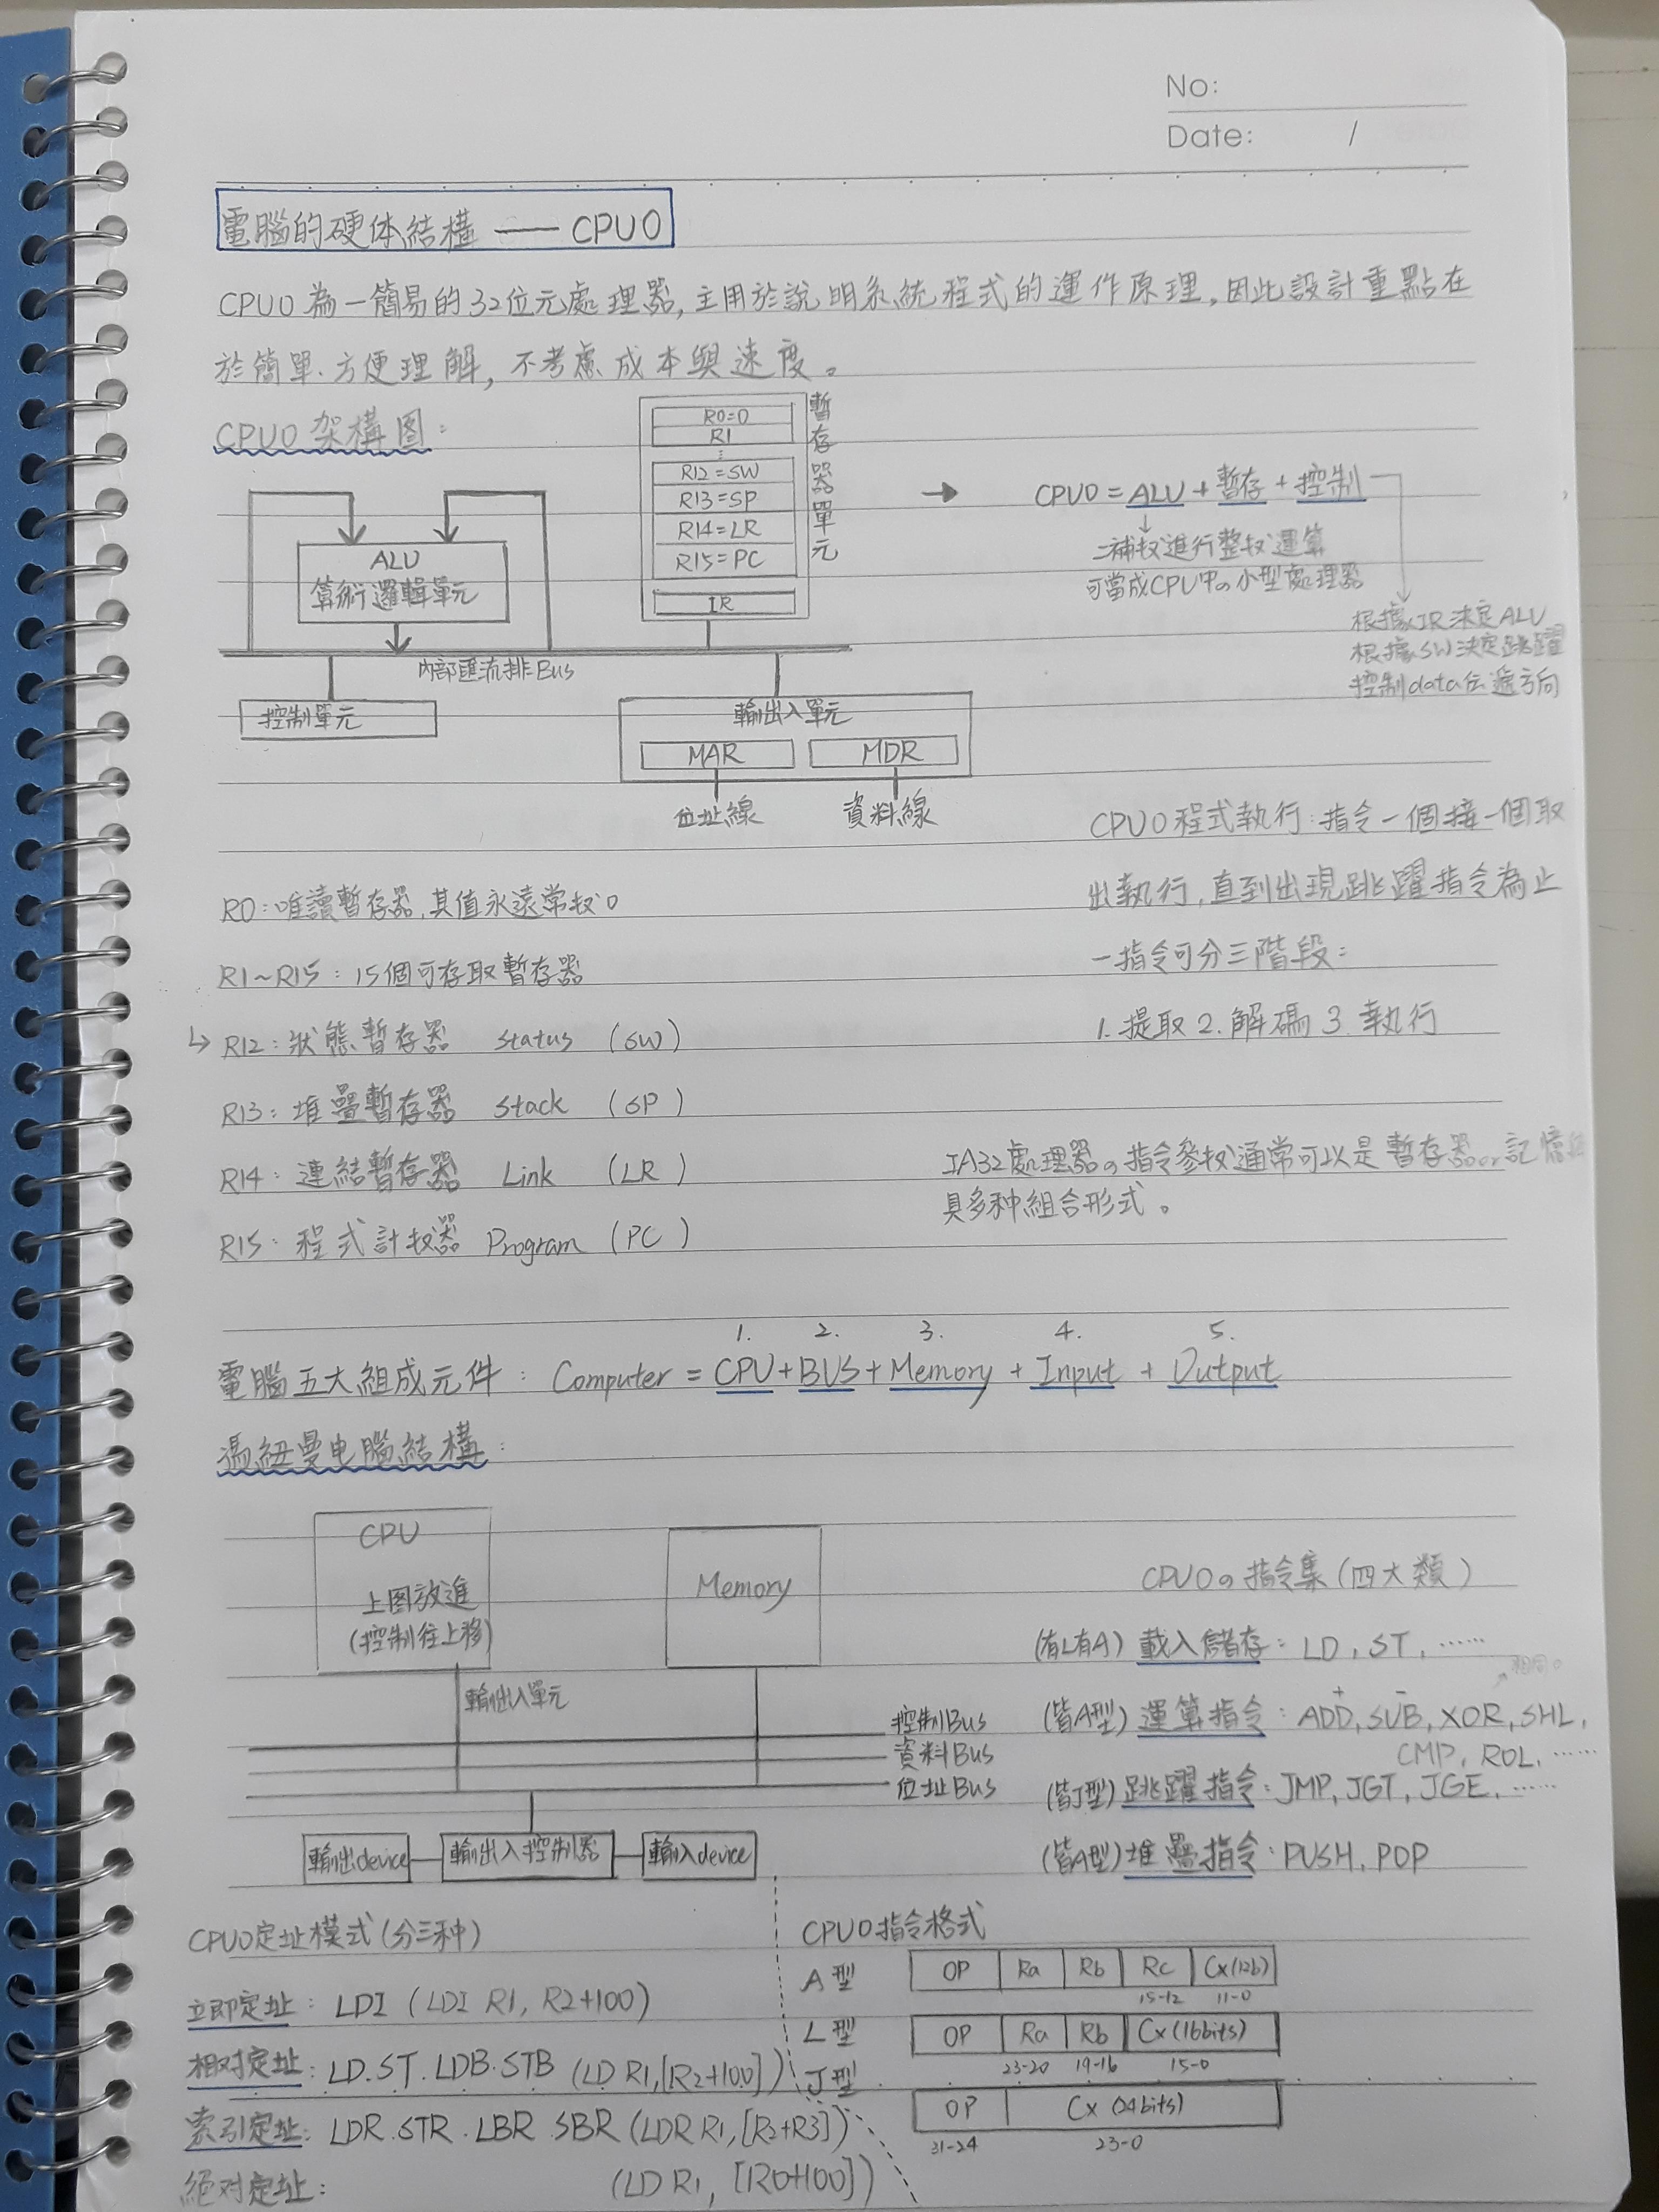 No:
Date: /
電腦的硬体結構 —— CPU0
CPU0 為一簡易的32位元處理器,主用於說明系統程式的運作原理,因此設計重點在
於簡單、方便理解,不考慮成本與速度。
CPU0 架構图:
R0=0
R1
⋮
R12=SW
R13=SP
R14=LR
R15=PC
IR
暫存器單元
ALU
算術邏輯單元
內部匯流排Bus
控制單元
輸出入單元
MAR
MDR
位址線
資料線
→ CPU0 = ALU + 暫存 + 控制
二補数進行整数運算
可當成CPU中の小型處理器
根據IR決定ALU
根據SW決定跳躍
控制data传遞方向
CPU0程式執行:指令一個接一個取
出執行,直到出現跳躍指令為止
一指令可分三階段:
1.提取 2.解碼 3.執行
R0:唯讀暫存器,其值永遠常数0
R1~R15:15個可存取暫存器
↳ R12:狀態暫存器 status (SW)
R13:堆疊暫存器 Stack (SP)
R14:連結暫存器 Link (LR)
R15:程式計数器 Program (PC)
IA32處理器の指令參数通常可以是暫存器or記憶
具多种組合形式。
1. 2. 3. 4. 5.
電腦五大組成元件:Computer = CPU+BUS+Memory + Input + Output
馮紐曼电腦結構:
CPU
上图放進
(控制往上移)
Memory
輸出入單元
控制Bus
資料Bus
位址Bus
輸出device
輸出入控制器
輸入device
CPU0の指令集(四大類)
(有L有A) 載入儲存:LD, ST, ……
相同。
+ −
(皆A型) 運算指令:ADD, SUB, XOR, SHL,
CMP, ROL, ……
(皆J型) 跳躍指令:JMP, JGT, JGE, ……
(皆A型) 堆疊指令:PUSH, POP
CPU0定址模式(分三种)
立即定址:LDI (LDI R1, R2+100)
相对定址:LD.ST.LDB.STB (LD R1,[R2+100])
索引定址:LDR.STR.LBR.SBR (LDR R1,[R2+R3])
絕对定址: (LD R1, [R0+100])
CPU0指令格式
A型 OP Ra Rb Rc Cx(12b)
15-12 11-0
L型 OP Ra Rb Cx(16bits)
23-20 19-16 15-0
J型
OP Cx (24bits)
31-24 23-0